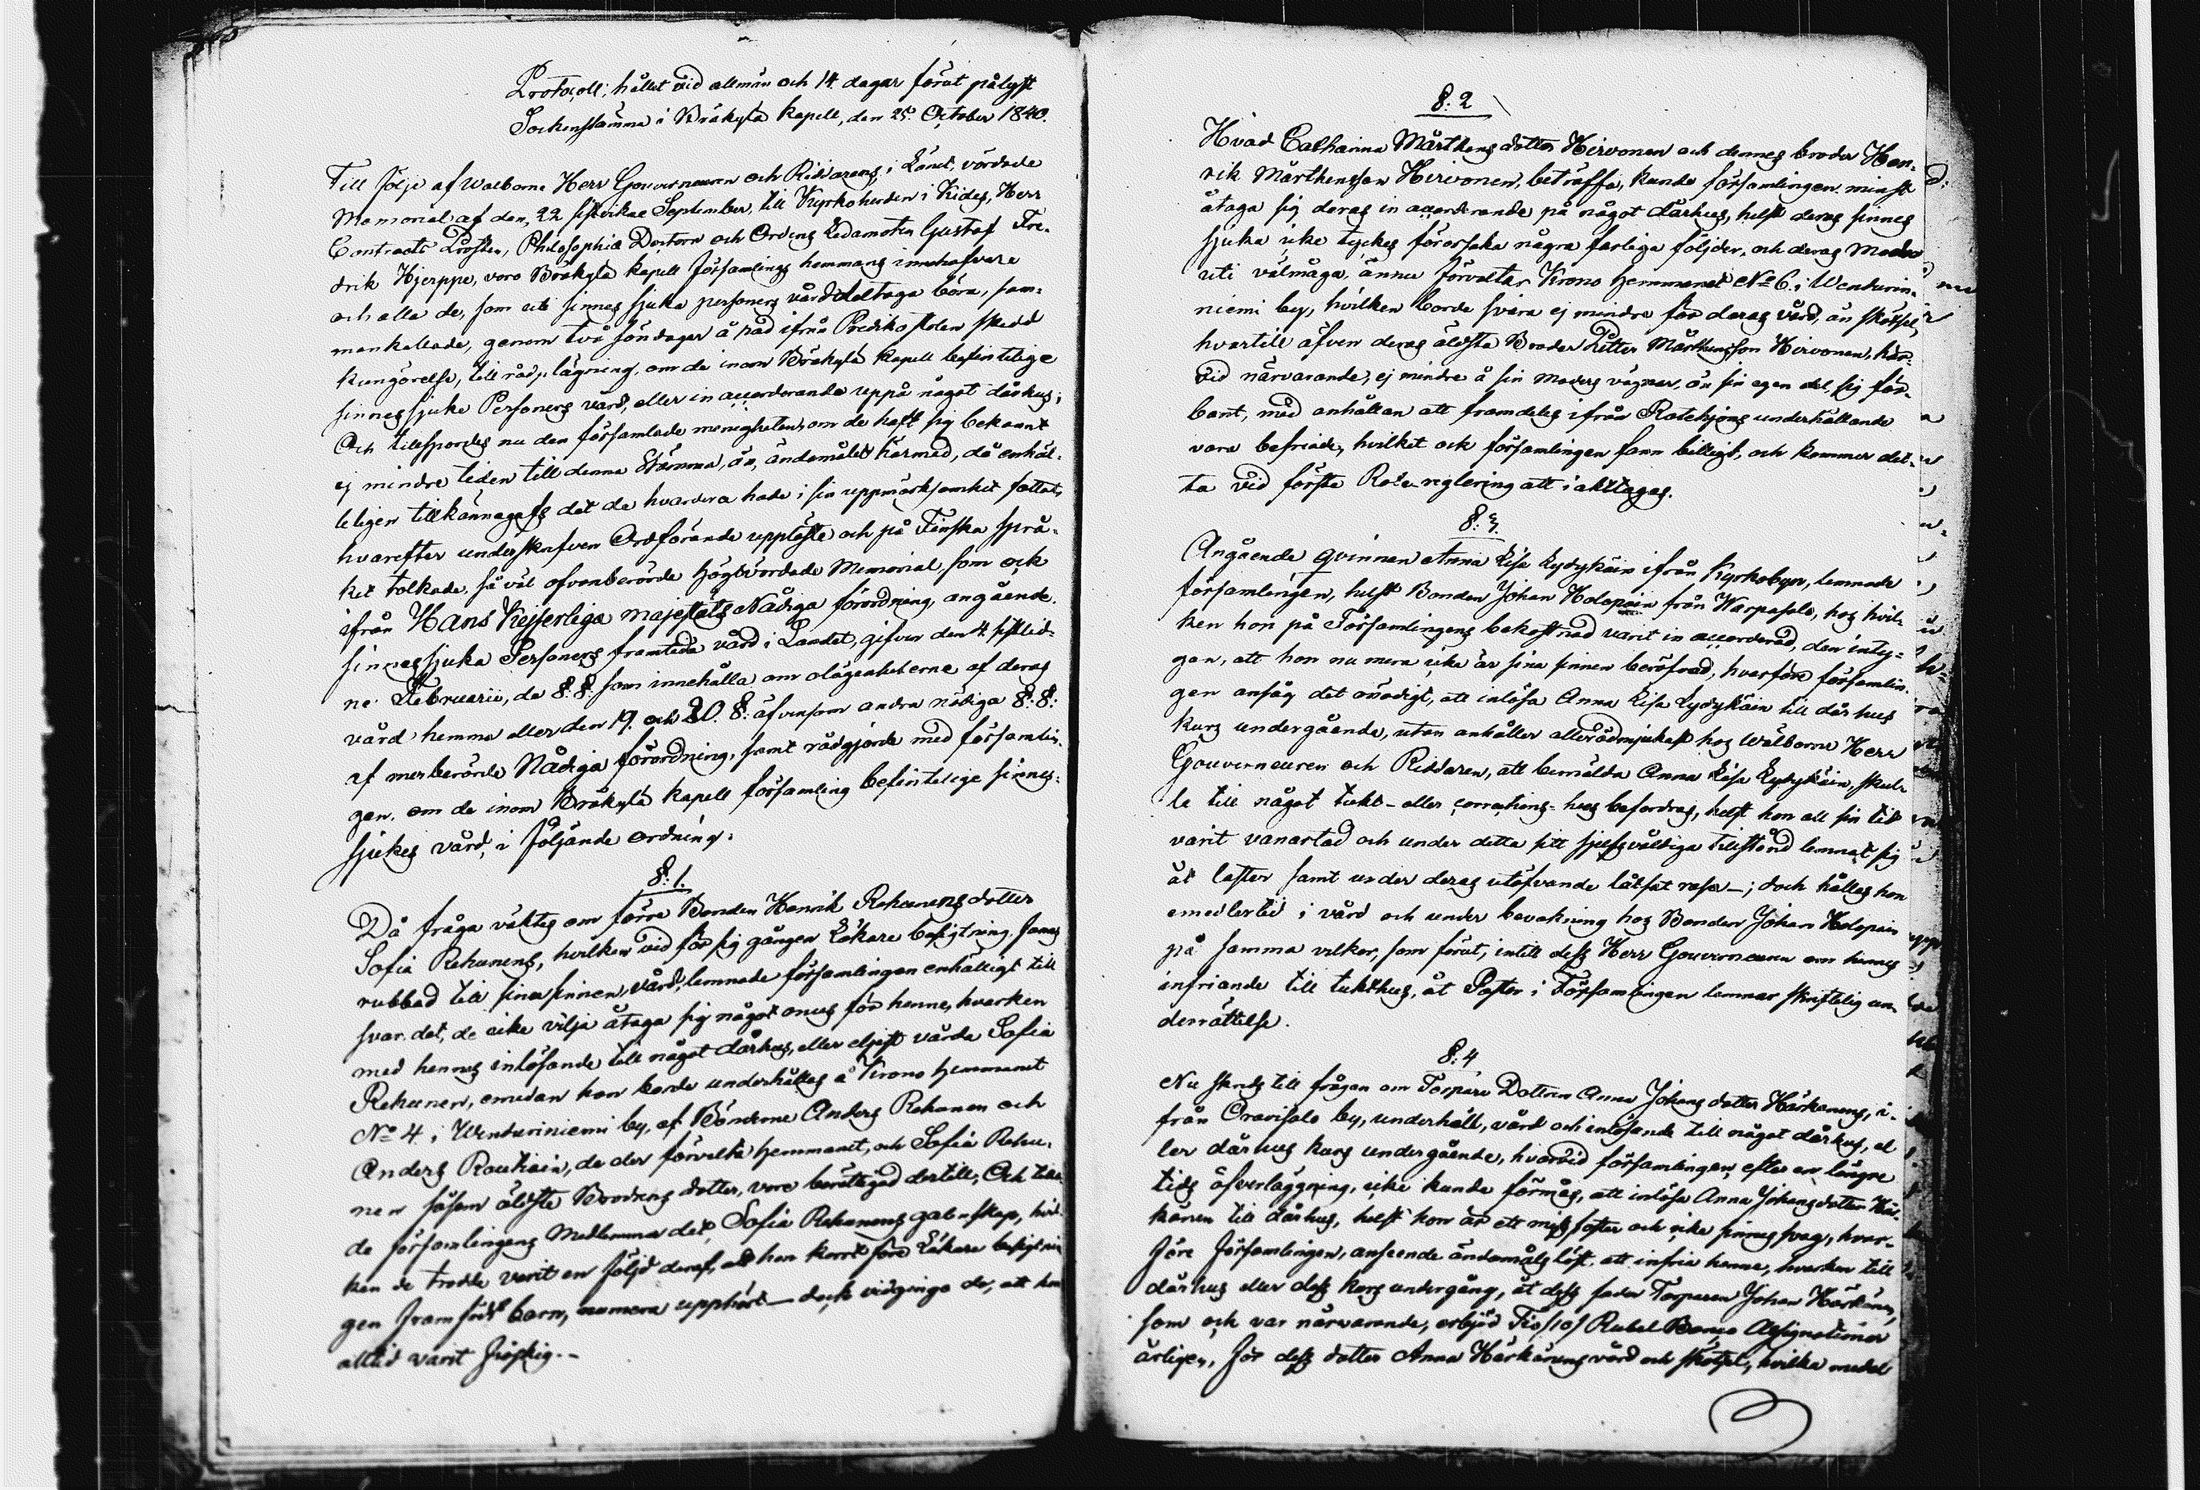 Protocoll, hållet vid allmän och 14 dagar förut pålyst
Sockenstämma i Bräkylä kapell, den 25. October 1840.
Till följe af Welborne Herr Gouverneuren och Riddarens i Länet, vördade
Memorial af den 22 sistvikne September, till Kyrkoherden i Kides, Herr
Contracts Prosten, Philosophiæ Doctorn och Ordens Ledamoten Gustaf Fre-
drik Hjerppe, voro Bräkylä kapell församlings hemmans innehafvare
och alla de, som uti sinnes sjuka personers vård deltaga böra, sam-
mankallade, genom två söndagar å rad ifrån Predikostolen skedd
kungörelse, till rådplägning, om de inom Bräkylä kapell befintelige
sinnessjuke Personers vård, eller inaccorderande uppå något dårhus;
Och tillspordes nu den församlade menigheten, om de haft sig bekant
ej mindre tiden till denna Stämma, än, ändamålet härmed, då enhäl-
leligen tillkännagafs det de hvardera hade i sin uppmärksamhet fattat,
hvarefter underskrefven Ordförande uppläste och på Finska språ-
ket tolkade, så väl ofvanberörde högtvördade Memorial, som ock
ifrån Hans Kejserliga Majestäts Nådiga förordning, angående
sinnessjuka Personers framtida vård i Landet, gifven den 4 sistlid-
ne Februarii, de §:§: som innehålla om olägenheterne af deras
vård hemma eller den 19. och 20. §: äfvensom andra nödiga §:§:
af merberörde Nådiga förordning, samt rådgjorde med församlin-
gen, om de inom Bräkylä kapell församling befintelige sinnes-
sjukes vård, i följande ordning:
§:1.
Då fråga väktes om förre Bonden Henrik Rehunens dotter
Sofia Rehunens, hvilken vid för sig gången Läkare besigtning fanns
rubbad till sina sinnen, vård, lemnade församlingen enhälligt till
svar det, de icke vilja åtaga sig något onus för henne, hvarken
med hennes inlösande till något dårhus, eller eljest vårda Sofia
Rehunen, emedan hon borde underhållas å Krono hemmanet
No 4 i Wenturiniemi by, af Bönderne Anders Rehunen och
Anders Rautiain, de der förvalta hemmanet, och Sofia Rehu-
nen såsom äldste Brodrens dotter, vore berättigad dertill; Och trod-
de församlingens Medlemmar det, Sofia Rehunens galenskap, hvil-
ken de trodde varit en följd deraf, att hon kort före Läkare besigtnin-
gen framfödt barn, numera upphört – dock vidgingo de, att hon
alltid varit fåfäng. –
§:2
Hvad Catharina Mårthens dotter Hirvonen och dennes broder Hen-
rik Mårthensson Hirvonen, beträffa, kunde församlingen minst
åtaga sig deras inaccorderande på något dårhus, helst deras sinnes
sjuka icke tyckes förorsaka några farliga följder, och deras Moder
uti välmåga ännu förvaltar Krono hemmanet No 6 i Wenturin-
niemi by, hvilken borde svara ej mindre för deras vård, än skötsel,
hvartill äfven deras äldsta Broder Petter Mårthensson Hirvonen, här-
vid närvarande, ej mindre å sin moders vägnar, än sin egen del, sig för-
bant, med anhållan att framdeles ifrån Rotehjons underhållande
vara befriade, hvilket ock församlingen fann billigt, och kommer det-
ta vid första Rote reglering att iakttagas.
§:3.
Angående qvinnan Anna Lisa Lydykäin ifrån Kyrkobyn, lemnade
församlingen, helst Bonden Johan Holopain från Warpasalo, hos hvil-
ken hon på Församlingens bekostnad varit inaccorderad, den inty-
gan, att hon nu mera icke är sina sinnen beröfvad, hvarföre församlin-
gen ansåg det onödigt, att inlösa Anna Lisa Lydykäin till dårhus
kurs undergående, utan anhåller allerödmjukast hos Wälborne Herr
Gouverneuren och Riddaren, att bemälda Anna Lisa Lydykäin, skul-
le till något tukt- eller corrections-hus befordras, helst hon all sin tid
varit vanartad och under detta sitt sjelfsvåldiga tillstånd lemnat sig
åt laster samt under deras utöfvande låtsat rasa –; doch hålles hon
emedlertid i vård och under bevakning hos Bonden Johan Holopain
på samma vilkor, som förut, intill dess Herr Gouverneuren om hennes
infriande till tukthus, åt Pastor i Församlingen lemnar skriftelig un-
derrättelse.
§:4
Nu skreds till frågan om Torpare Dottren Anna Johans dotter Härkänens, i-
från Oravisalo by, underhåll, vård och inlösande till något dårhus, el-
ler dårhus kurs undergående, hvarvid församlingen, efter en längre
tids öfverläggning, icke kunde förmås, att inlösa Anna Johansdotter Här-
känen till dårhus, helst hon är ett missfoster och icke sinnessvag, hvar-
före församlingen, ansende ändamåls löst, att infria henne, hvarken till
dårhus eller dess kurs undergång, åt dess fader Torparen Johan Härkänen,
som ock var närvarande, erbjöd Tio /10/ Rubel Banco Assignationer
årligen, för dess dotter Anna Härkänens vård och skötsel, hvilka medel